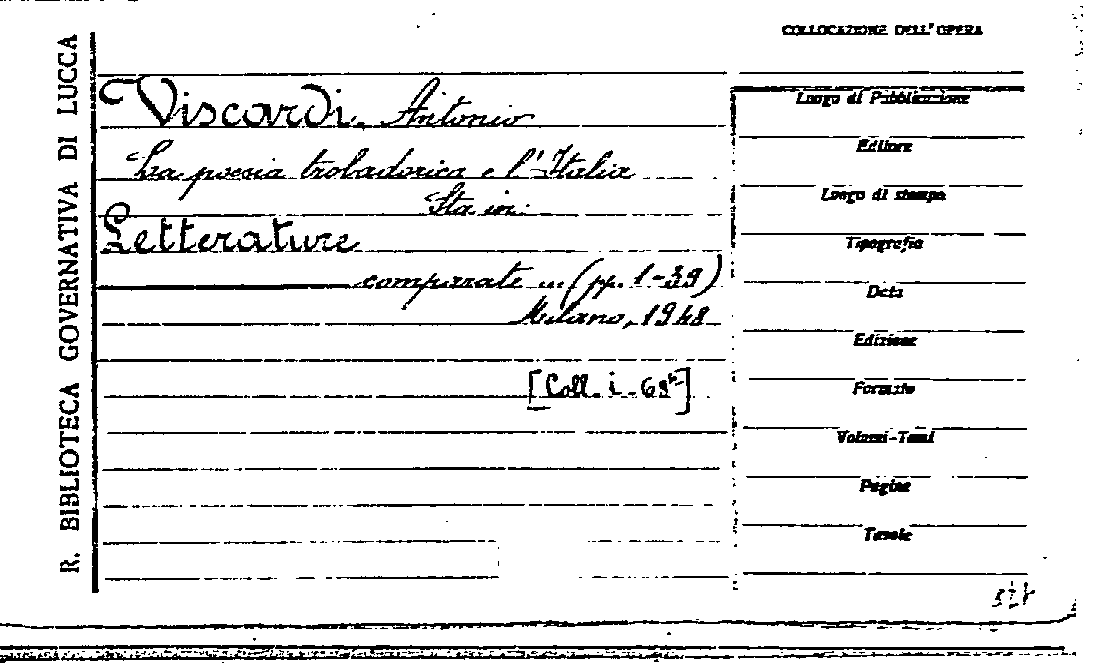 R. BIBLIOTECA GOVERNATIVA DI LUCCA
COLLOCAZIONE DELL'OPERA
Viscardi. Antonio
La poesia trobadorica e l'Italia
Sta in:
Letterature
comparate ... (pp. 1-39)
Milano, 1948
[Coll. i. 68
Luogo di Pubblicazione
Editore
Luogo di stampa
Tipografia
Data
Edizione
Formato
Volumi-Tomi
Pagine
Tavole